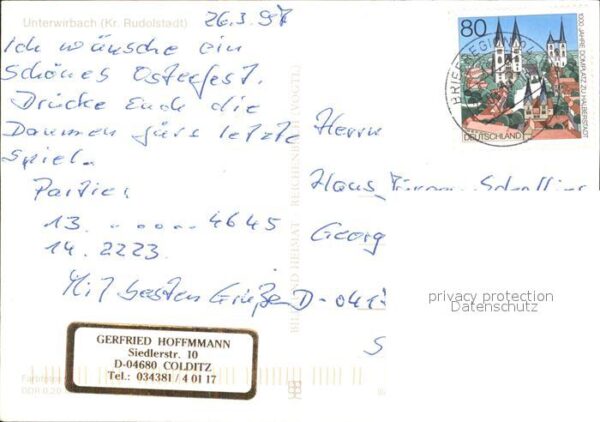 Unterwirbach (Kr. Rudolstadt)
26.3.97
Ich wünsche ein
schönes Osterfest.
Drücke Euch die
Daumen fürs letzte
Spiel.
Partie:
13. ..... 4645
14. 2223.
Mit besten Grüßen
GERFRIED HOFFMMANN
Siedlerstr. 10
D-04680 COLDITZ
Tel.: 034381 / 4 01 17
BILD UND HEIMAT REICHENBACH (VOGTL)
80
DEUTSCHLAND
1000 JAHRE DOMPLATZ ZU HALBERSTADT
BRIEFREGION
Herrn
Hans
Georg
D-041
S
privacy protection
Datenschutz